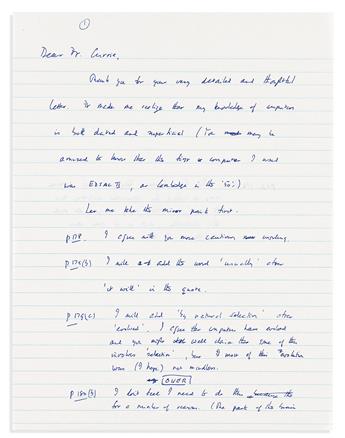 ①
Dear Dr. Currie,
Thank you for your very detailed and thoughtful
letter. It made me realize that my knowledge of computers
is both dated and superficial (You may be
amused to know that the first computer I used
was EDSAC II, at Cambridge in the '50s)
Let me take the minor points first.
p 178. I agree with your more cautious wording.
p 179(3) I will add the word 'usually' after
'it will' in the quote.
p 179(c) I will add 'by natural selection' after
'evolved'. I agree that computers have evolved
and you might well claim that some of this
involves 'selection', but most of this evolution
was (I hope) not mindless.
OVER
p 180(3) I don't feel I need to do this because this
for a number of reasons. (The parts of the brain